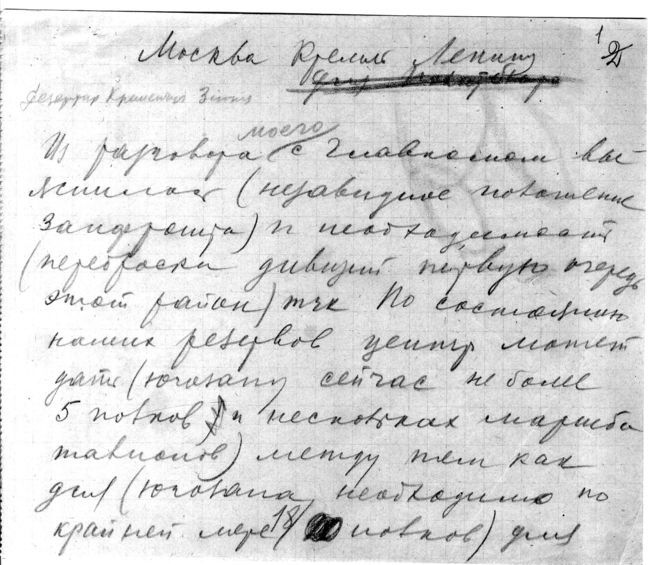 1
2
Москва Кремль Ленину
моего
Из разговора с Главкомом вы-
яснилось (незавидное положение
Запфронта) и необходимость
(переброски дивизий первую очередь
этот район) тчк По состоянию
наших резервов центр может
дать (югозапу сейчас не более
5 полков) и нескольких маршба
тальонов) между тем как
для (югозапа необходимо по
крайней мере 18 полков) для